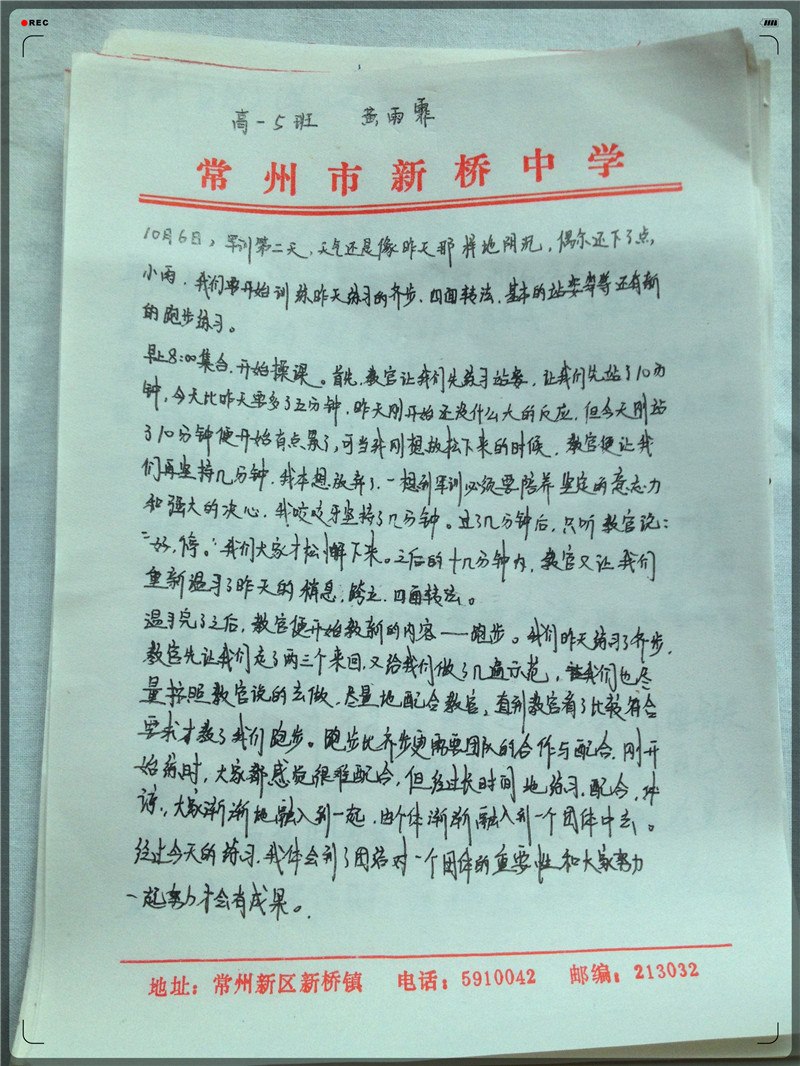 REC
高一5班 黄雨霏
常州市新桥中学
10月6日，军训第二天，天气还是像昨天那样地阴沉，偶尔还下了点
小雨，我们开始训练昨天练习的齐步、四面转法、基本的站姿等等还有新
的跑步练习。
早上8:00集合，开始操课。首先，教官让我们先练习站姿，让我们先站了10分
钟，今天比昨天要多了五分钟，昨天刚开始还没什么大的反应，但今天刚站
了10分钟便开始有点累了，可当我刚想放松下来的时候，教官便让我
们再坚持几分钟，我本想放弃了，一想到军训必须要培养坚定的意志力
和强大的决心，我咬咬牙坚持了几分钟。过了几分钟后，只听教官说：
“好，停。”我们大家才松懈下来。之后的十几分钟内，教官又让我们
重新温习了昨天的稍息、跨立、四面转法。
温习完了之后，教官便开始教新的内容——跑步。我们昨天练习了齐步，
教官先让我们走了两三个来回，又给我们做了几遍示范，我们也尽
量按照教官说的去做，尽量地配合教官，直到教官看了比较符合
要求才教了我们跑步。跑步比齐步更需要团队的合作与配合，刚开
始药时，大家都感觉很难配合，但经过长时间地练习、配合、体
谅，大家渐渐地融入到一起，由个体渐渐融入到一个团体中去。
经过今天的练习，我体会到了团结对一个团体的重要性和大家努力
一起努力才会有成果。
地址：常州新区新桥镇 电话：5910042 邮编：213032